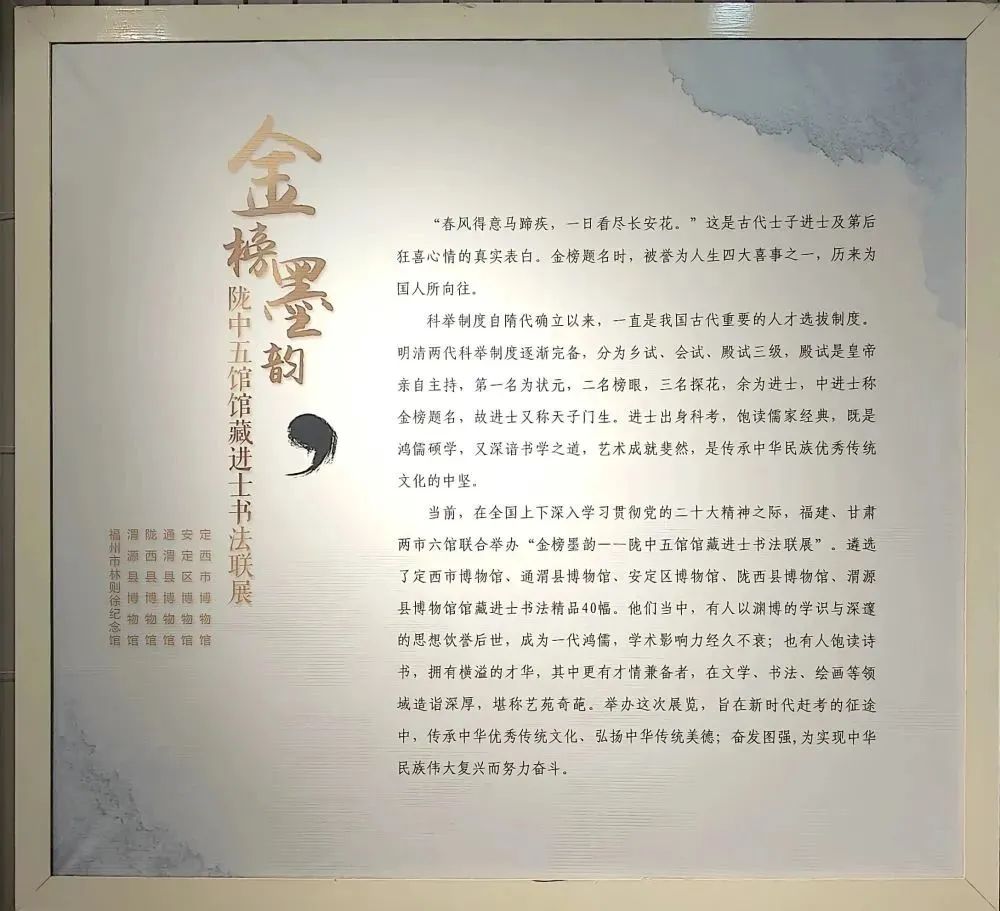 金榜墨韵
陇中五馆馆藏进士书法联展
定西市博物馆
安定区博物馆
通渭县博物馆
陇西县博物馆
渭源县博物馆
福州市林则徐纪念馆
“春风得意马蹄疾，一日看尽长安花。”这是古代士子进士及第后
狂喜心情的真实表白。金榜题名时，被誉为人生四大喜事之一，历来为
国人所向往。
科举制度自隋代确立以来，一直是我国古代重要的人才选拔制度。
明清两代科举制度逐渐完备，分为乡试、会试、殿试三级，殿试是皇帝
亲自主持，第一名为状元，二名榜眼，三名探花，余为进士，中进士称
金榜题名，故进士又称天子门生。进士出身科考，饱读儒家经典，既是
鸿儒硕学，又深谙书学之道，艺术成就斐然，是传承中华民族优秀传统
文化的中坚。
当前，在全国上下深入学习贯彻党的二十大精神之际，福建、甘肃
两市六馆联合举办“金榜墨韵——陇中五馆馆藏进士书法联展”。遴选
了定西市博物馆、通渭县博物馆、安定区博物馆、陇西县博物馆、渭源
县博物馆馆藏进士书法精品40幅。他们当中，有人以渊博的学识与深邃
的思想饮誉后世，成为一代鸿儒，学术影响力经久不衰；也有人饱读诗
书，拥有横溢的才华，其中更有才情兼备者，在文学、书法、绘画等领
域造诣深厚，堪称艺苑奇葩。举办这次展览，旨在新时代赶考的征途
中，传承中华优秀传统文化、弘扬中华传统美德；奋发图强,为实现中华
民族伟大复兴而努力奋斗。